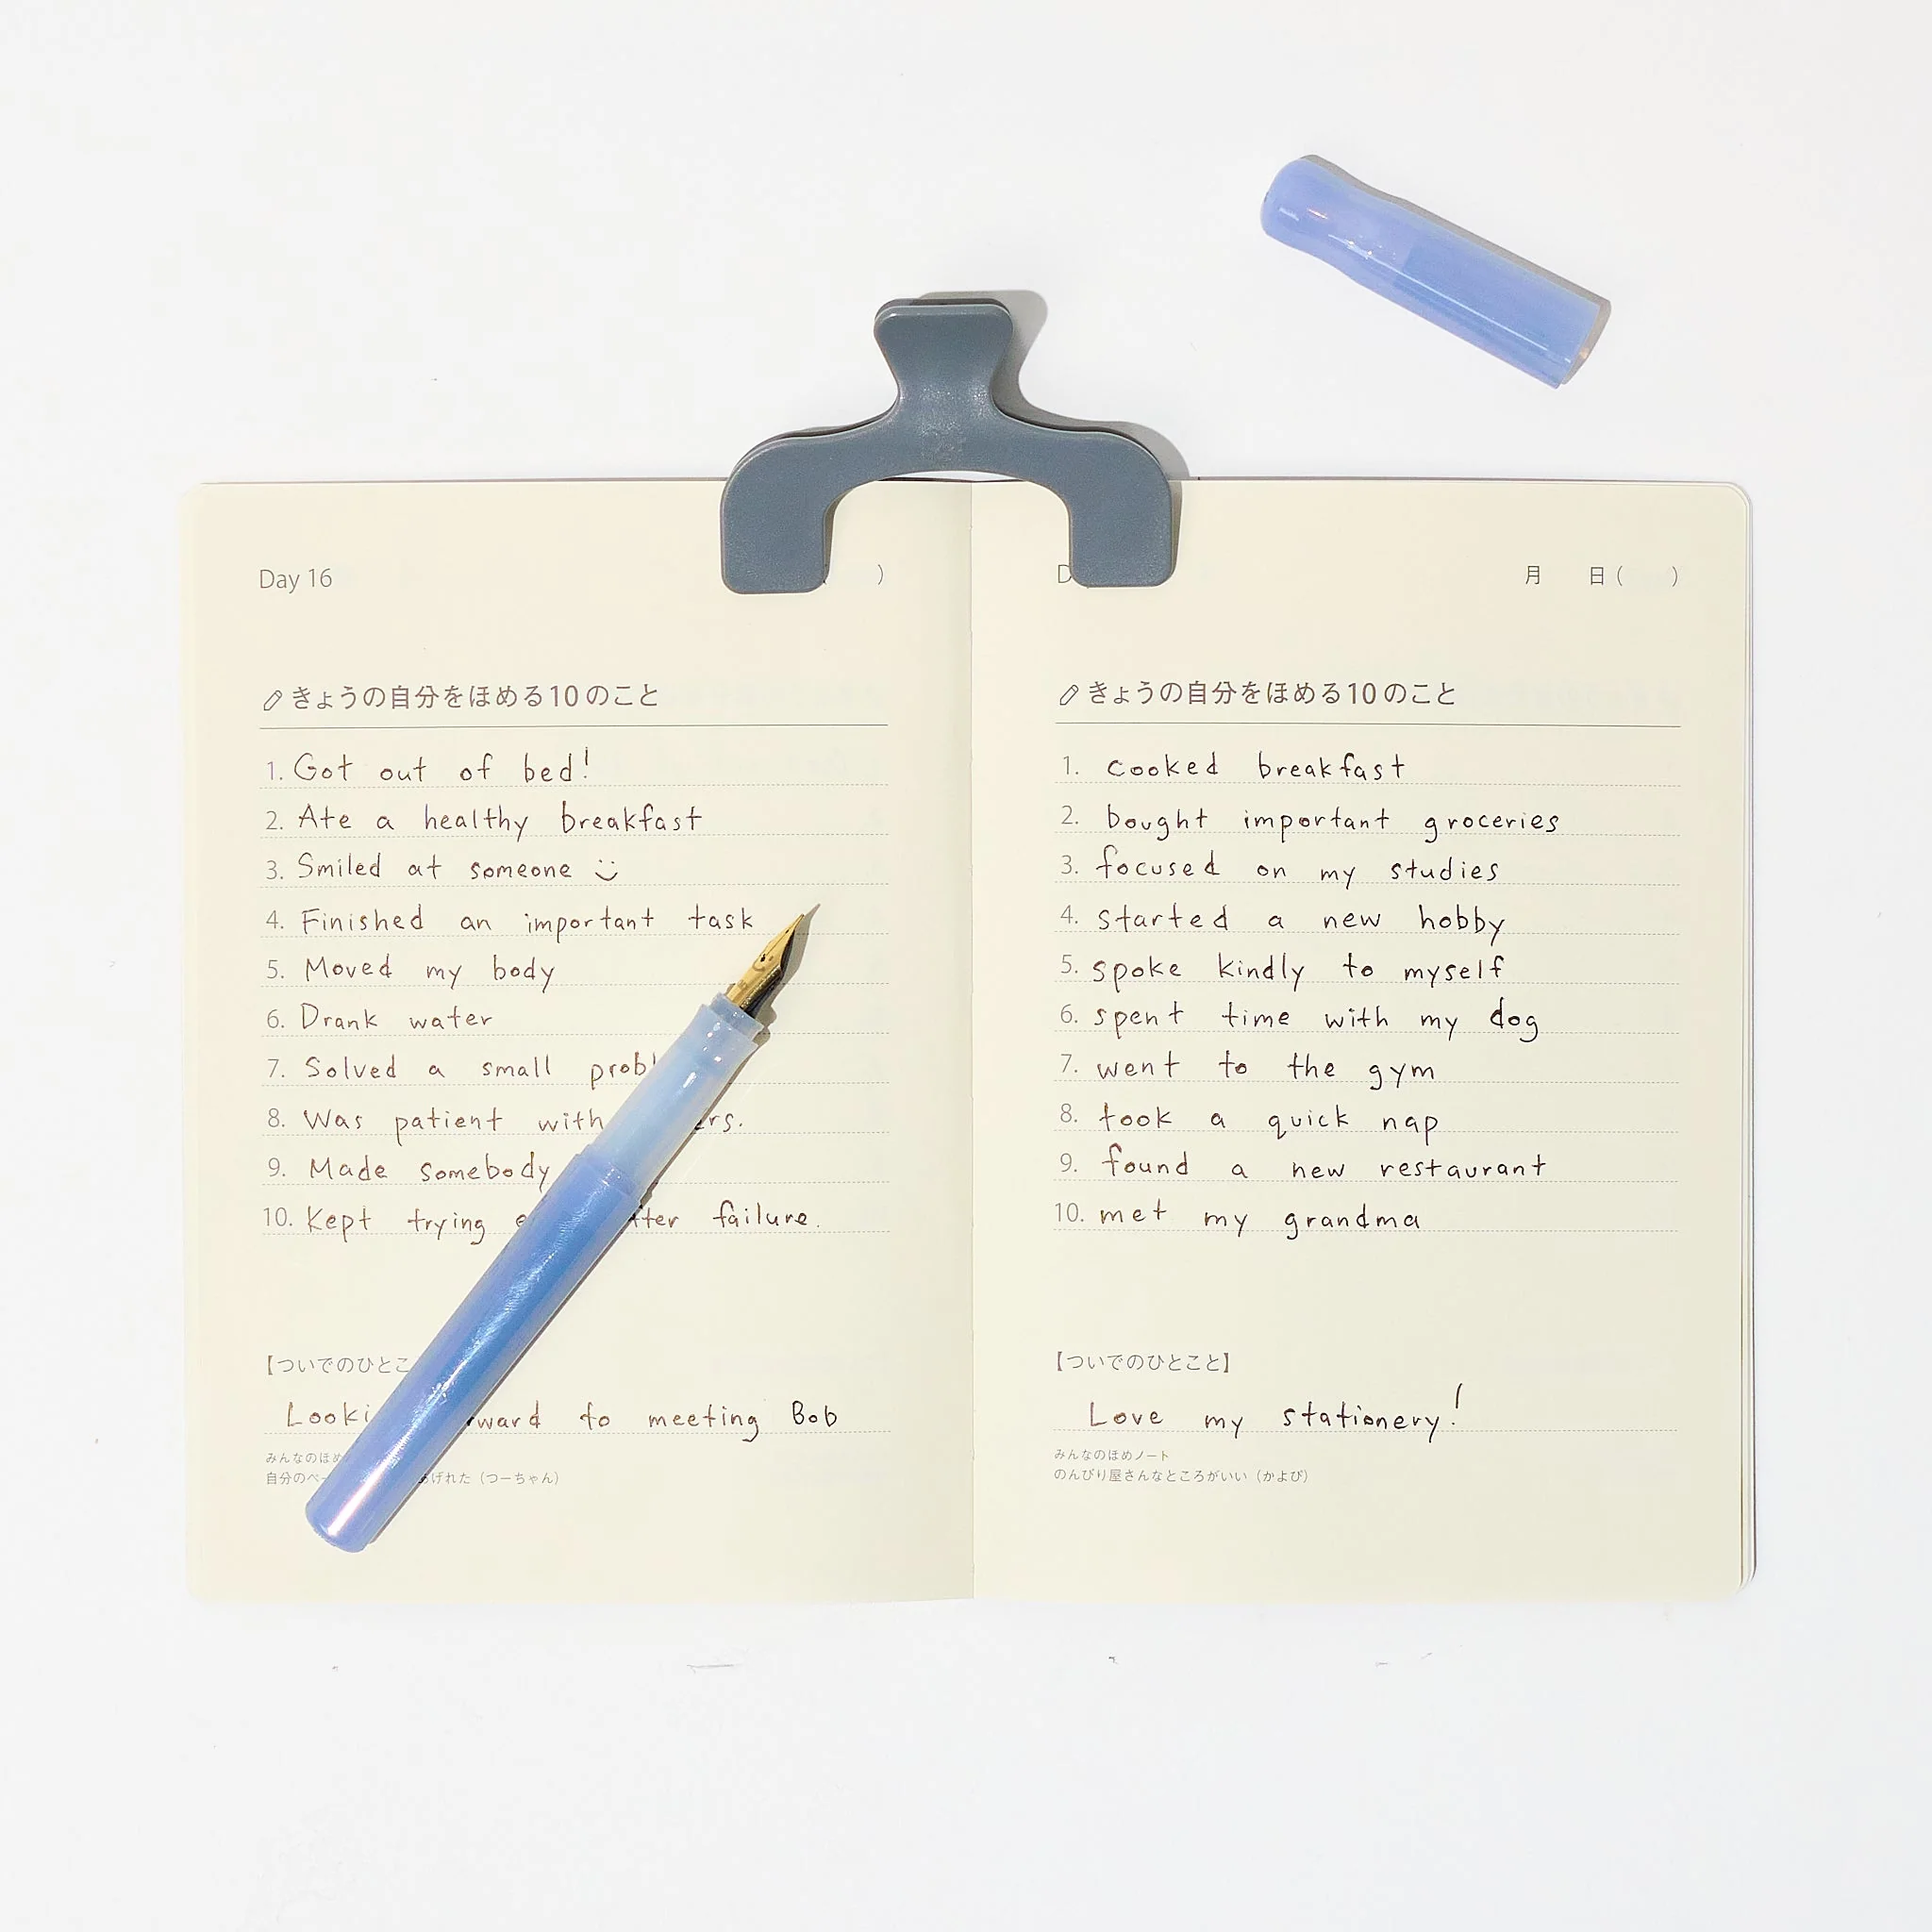 Day 16 )
きょうの自分をほめる10のこと
1. Got out of bed!
2. Ate a healthy breakfast
3. Smiled at someone
4. Finished an important task
5. Moved my body
6. Drank water
7. Solved a small
8. Was patient with
9. Made somebody
10. Kept trying failure.
【ついでのひとこ
to meeting Bob
みんなのほめ
自分のペ げれた（つーちゃん）
月 日 ( )
きょうの自分をほめる10のこと
1. cooked breakfast
2. bought important groceries
3. focused on my studies
4. started a new hobby
5. spoke kindly to myself
6. spent time with my dog
7. went to the gym
8. took a quick nap
9. found a new restaurant
10. met my grandma
【ついでのひとこと】
Love my stationery!
みんなのほめノート
のんびり屋さんなところがいい（かよぴ）